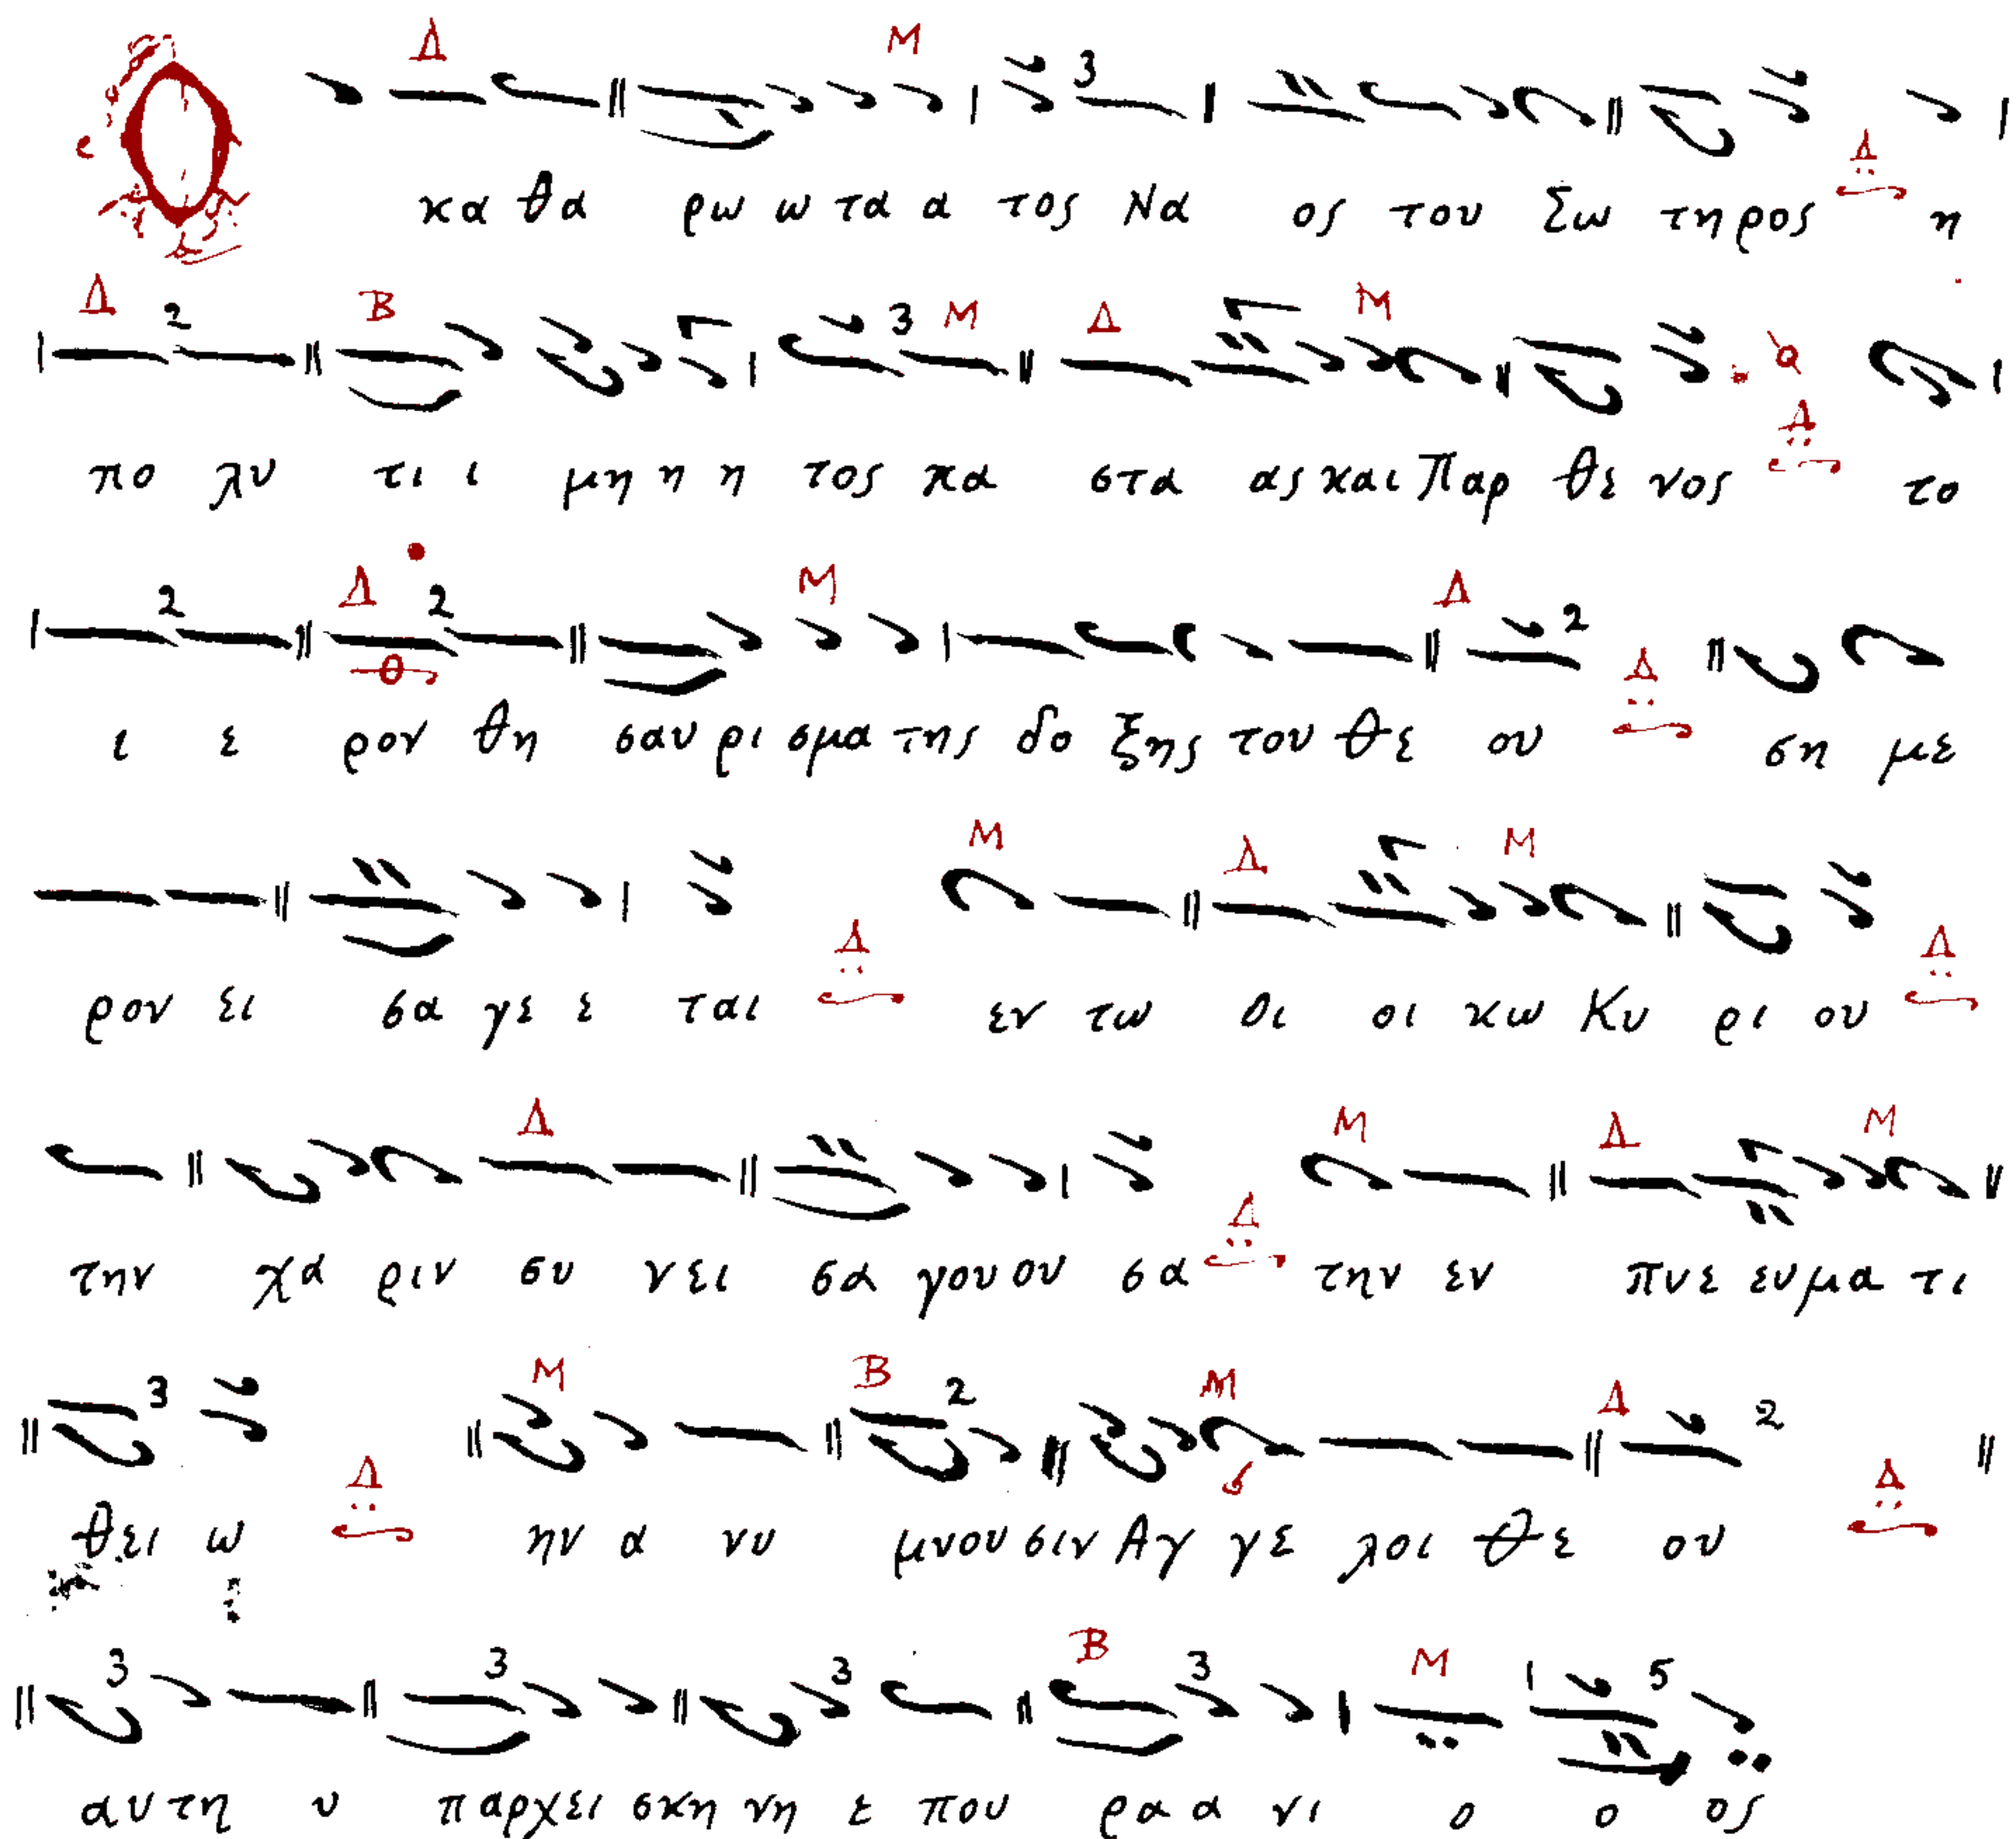 Ο κα θα ρω ω τα α τος Να ος του Σω τηρος η
πο λυ τι ι μη η η τος πα στα ας και Παρ θε νος το
ι ε ρον θη σαυ ρι σμα της δο ξης του Θε ου ση με
ρον ει σα γε ε ται εν τω Οι οι κω Κυ ρι ου
την χα ριν συ νει σα γου ου σα την εν πνε ευ μα τι
θει ω ην α νυ μνου σιν Αγ γε λοι Θε ου
αυ τη υ παρχει σκη νη ε που ρα α νι ο ο ος